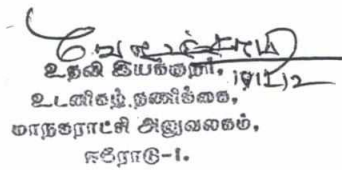 உதவி இயக்குநர்,
உடனிகழ் தணிக்கை,
மாநகராட்சி அலுவலகம்,
ஈரோடு-1.